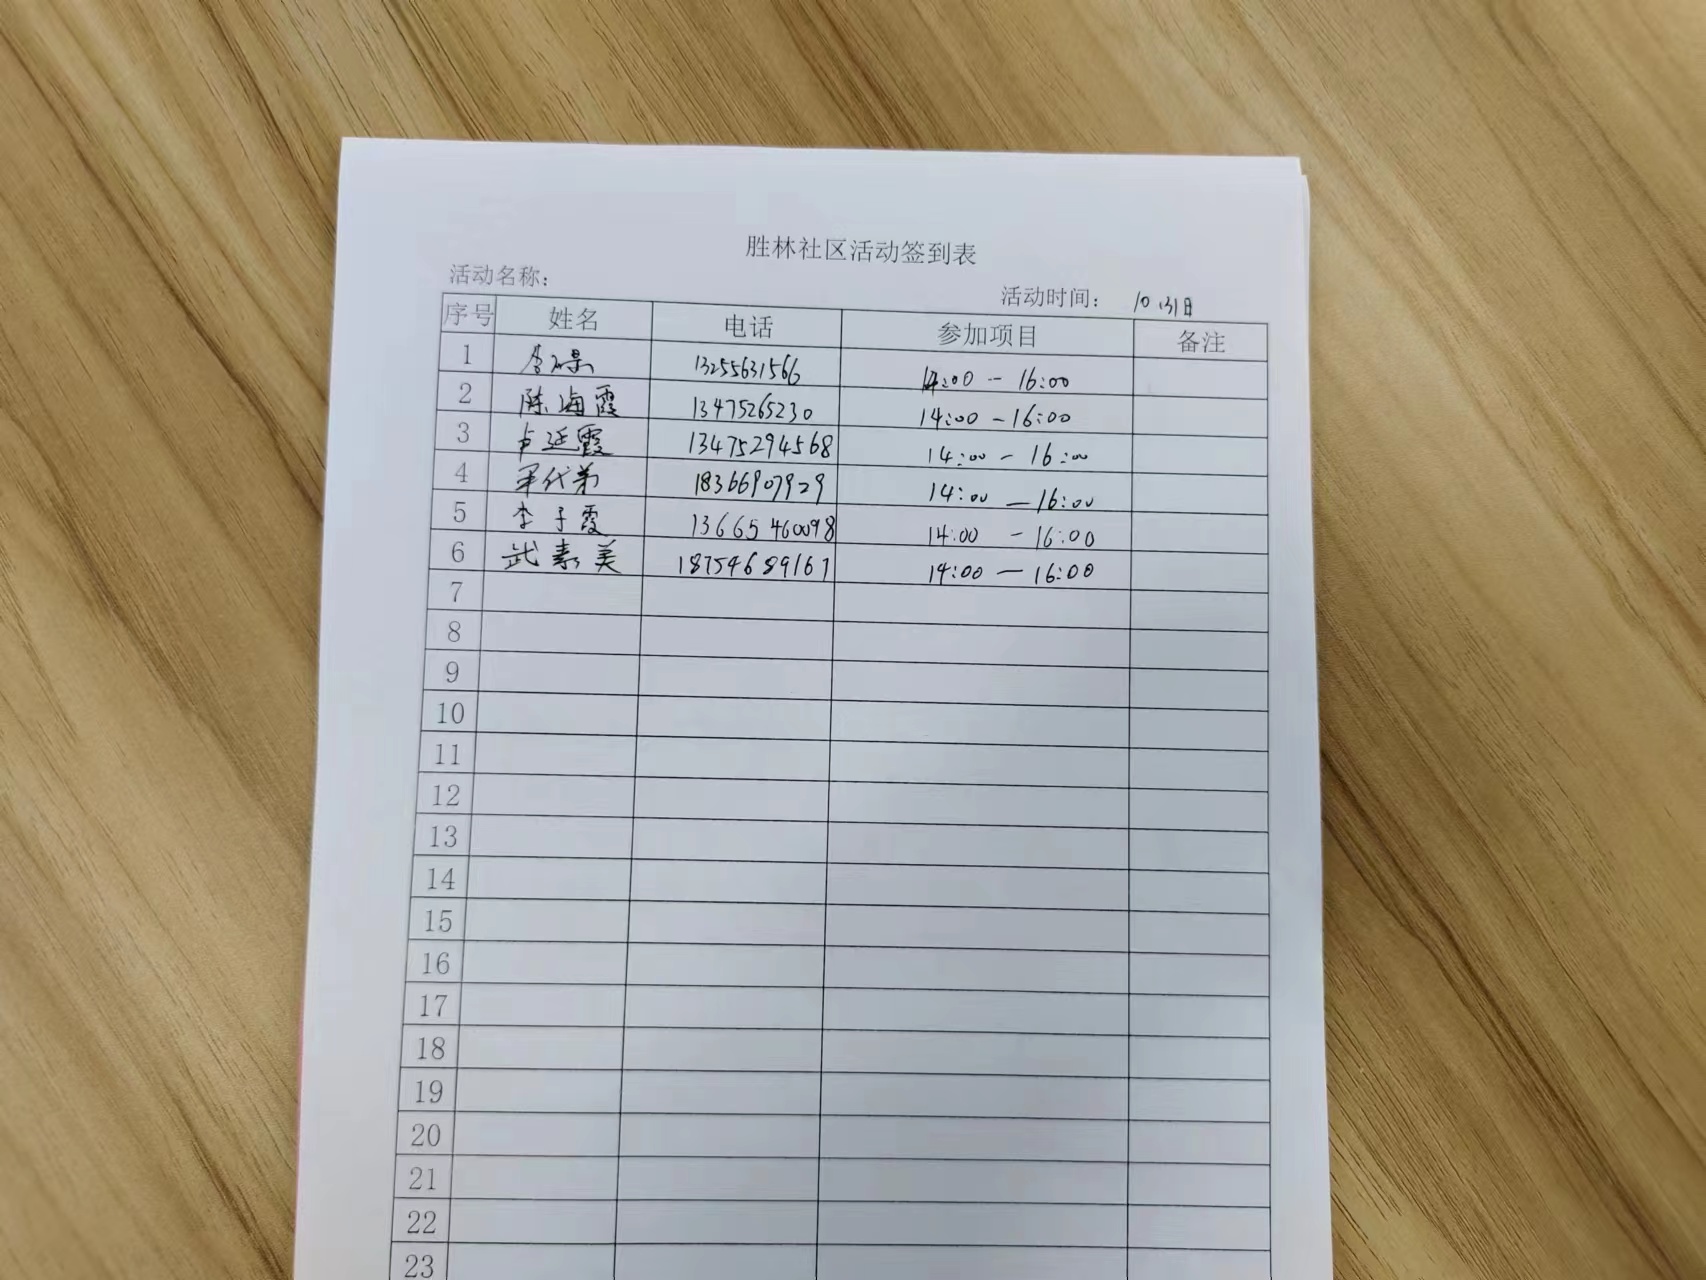 胜林社区活动签到表
活动名称： 活动时间： 10.31日
序号 姓名 电话 参加项目 备注
1 13255631566 14:00-16:00
2 陈海霞 13475265230 14:00-16:00
3 卢延霞 13475294568 14:00-16:00
4 18366907929 14:00-16:00
5 李子霞 13665460098 14:00-16:00
6 武素美 18754689167 14:00-16:00
7
8
9
10
11
12
13
14
15
16
17
18
19
20
21
22
23